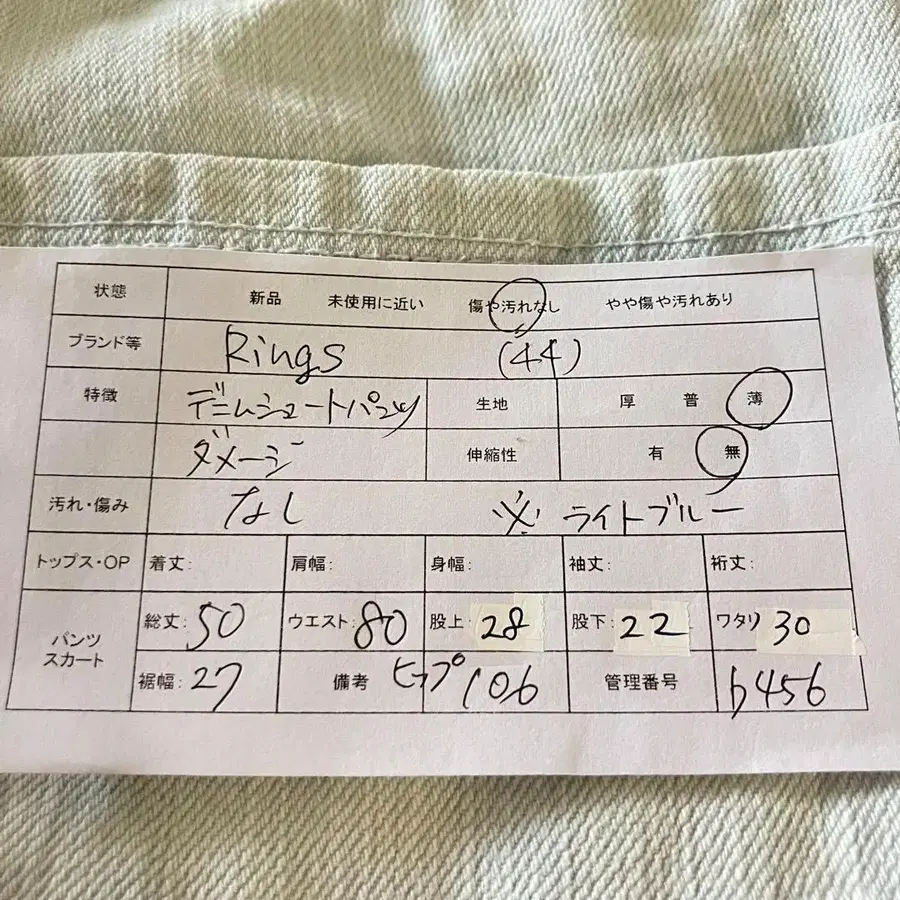 状態 新品 未使用に近い 傷や汚れなし やや傷や汚れあり
ブランド等 Rings (44)
特徴 デニムショートパンツ 生地 厚 普 薄
ダメージ 伸縮性 有 無
汚れ・傷み なし ※ ライトブルー
トップス・OP 着丈: 肩幅: 身幅: 袖丈: 裄丈:
パンツ スカート 総丈: 50 ウエスト: 80 股上: 28 股下: 22 ワタリ 30
裾幅: 27 備考 ヒップ 106 管理番号 b456